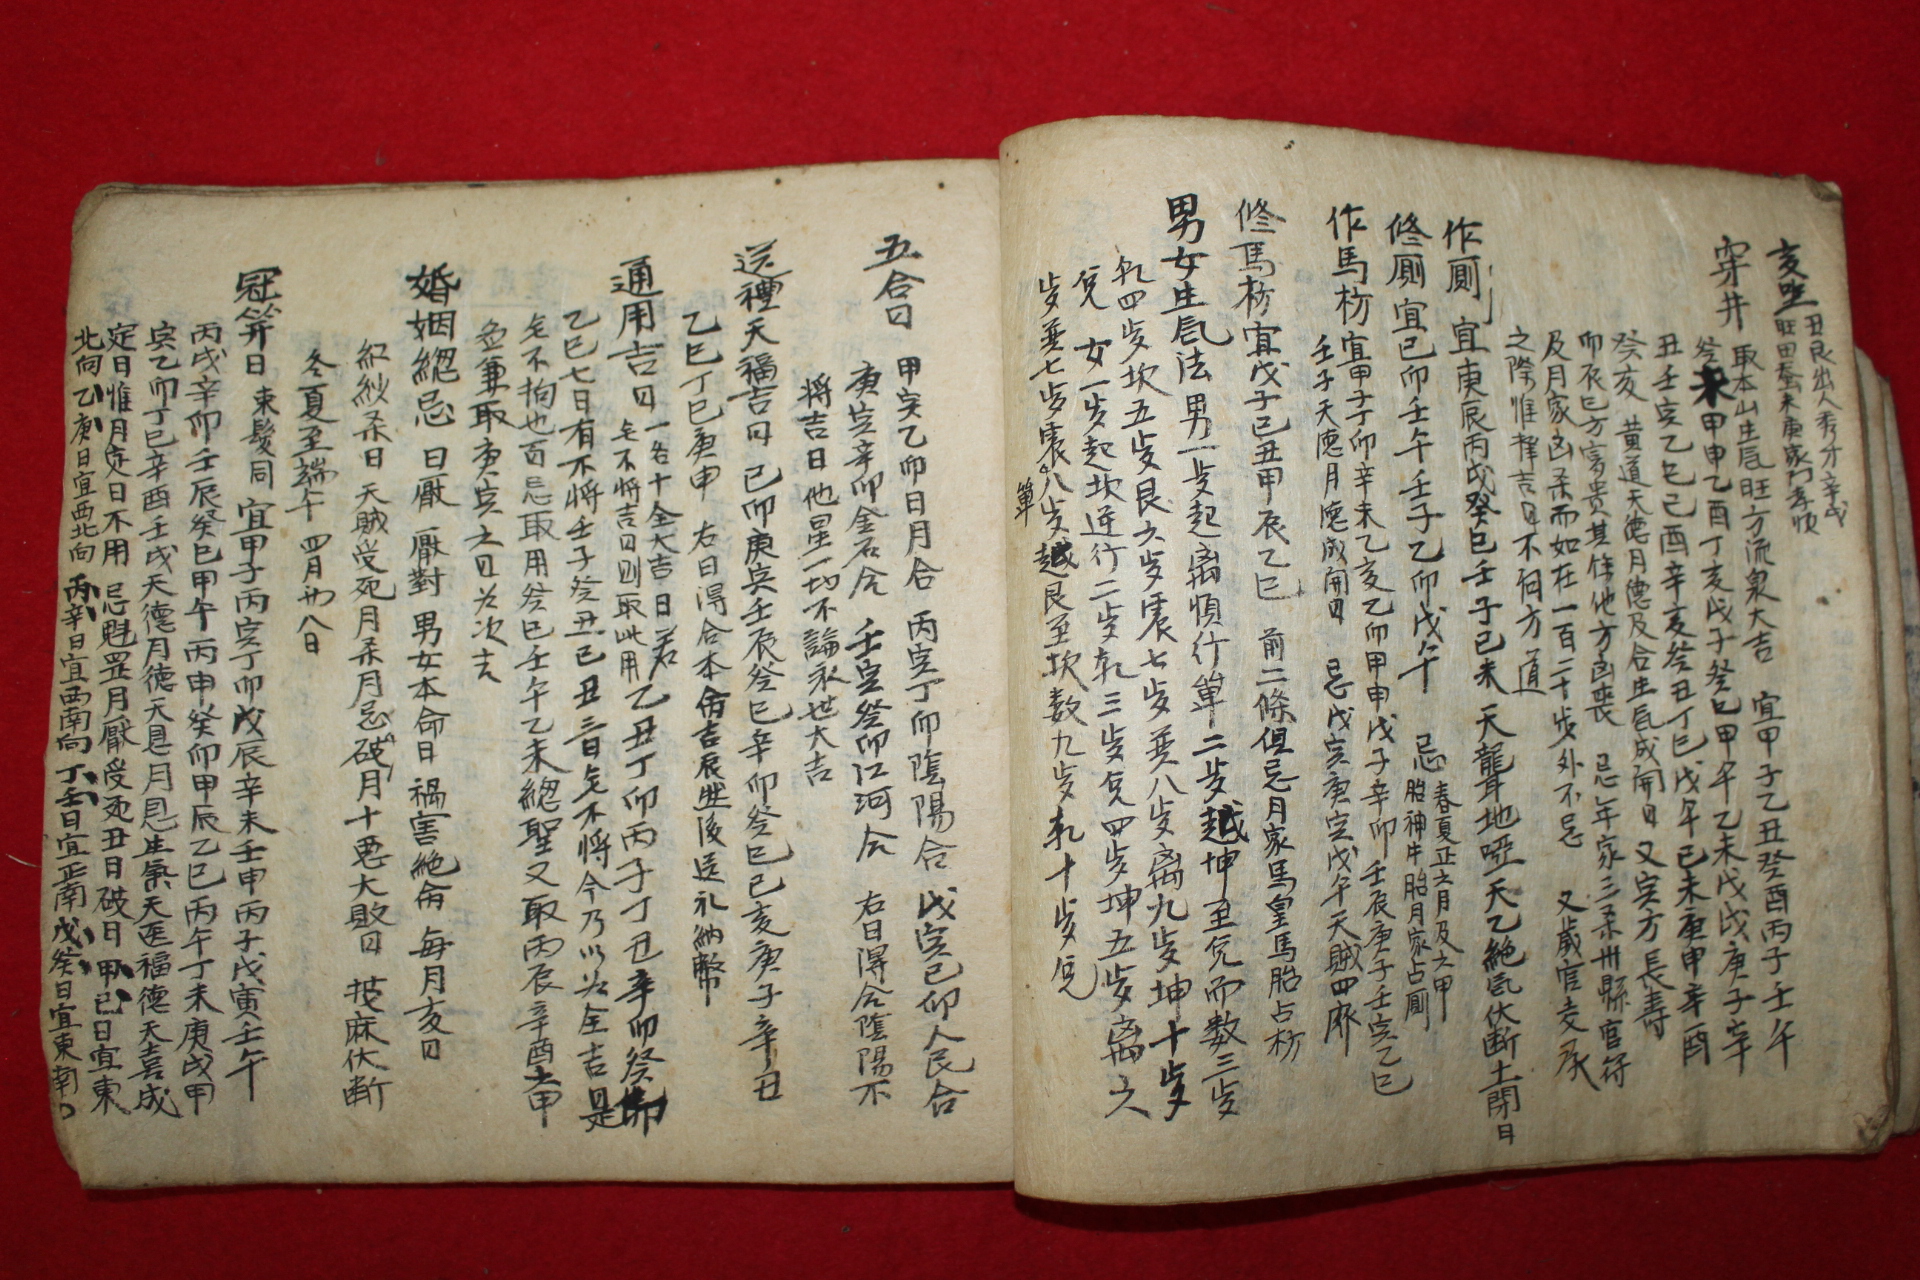 亥坐 丑艮出人秀才辛戌
旺田蚕未庚家门孝順
穿井 取本山生气旺方流泉大吉 宜甲子乙丑癸酉丙子壬午
癸未甲申乙酉丁亥戊子癸巳甲午乙未戊戌庚子辛
丑壬亥乙巳己酉辛亥癸丑丁巳戊午己未庚申辛酉
癸亥 黄道天德月德及合生气成開日 又亥方長壽
卯辰巳方富贵其餘他方凶喪 忌年家三杀州縣官符
及月家凶杀而如在一百二十步外不忌 又歲官交承
之際惟擇吉日不拘方道
作厠 宜庚辰丙戌癸巳壬子己未 天聾地啞天乙絶气伏断土閉日
修厠 宜己卯壬午壬子乙卯戊午 忌 春夏正六月及六甲
胎神牛胎月家占厠
作馬枋 宜甲子丁卯辛未乙亥乙卯甲申戊子辛卯壬辰庚子壬寅乙巳
壬子天德月德成開日 忌戊寅庚寅戊午天賊四廢
修馬枋 宜戊子己丑甲辰乙巳 前二條俱忌月家馬皇馬胎占枋
男女生气法 男一歩起离順行筭二歩越坤至兊而数三歩
乹四歩坎五歩艮六歩震七歩巽八歩离九歩坤十歩
兊 女一歩起坎逆行二歩乹三歩兊四歩坤五歩离六
歩巽七歩震八歩越艮至坎数九歩乹十歩兊
筭
五合日 甲寅乙卯日月合 丙寅丁卯陰陽合 戊寅己卯人民合
庚寅辛卯金石合 壬寅癸卯江河合 右日得合陰陽不
將吉日他星一切不論永世大吉
送禮天福吉日 己卯庚寅壬辰癸巳辛卯癸巳己亥庚子辛丑
乙巳丁巳庚申 右日得合本命吉辰 後送礼納幣
通用吉日 一名十全大吉日若
乇不將吉日則取此用
乙丑丁卯丙子丁丑辛卯癸卯
乙巳七日有不將壬子癸丑己丑三日乇不將今乃以為全吉是
乇不拘也百忌取用癸巳壬午乙未總聖又取丙辰辛酉六甲
並兼取庚寅之日為次吉
婚姻總忌 日厭 厭對 男女本命日 禍害絶命 每月亥日
紅紗杀日 天賊受死月杀月忌破月十惡大敗日 披麻伏断
冬夏至端午 四月初八日
冠笄日 束髮同 宜甲子丙寅丁卯戊辰辛未壬申丙子戊寅壬午
丙戌辛卯壬辰癸巳甲午丙申癸卯甲辰乙巳丙午丁未庚戌甲
寅乙卯丁巳辛酉壬戌天德月德天恩月恩生氣天医福德天喜成
定日惟月定日不用 忌魁罡月厭受死丑日破日 甲己日宜東
北向 乙庚日宜西北向 丙辛日宜西南向 丁壬日宜正南 戊癸日宜東南口